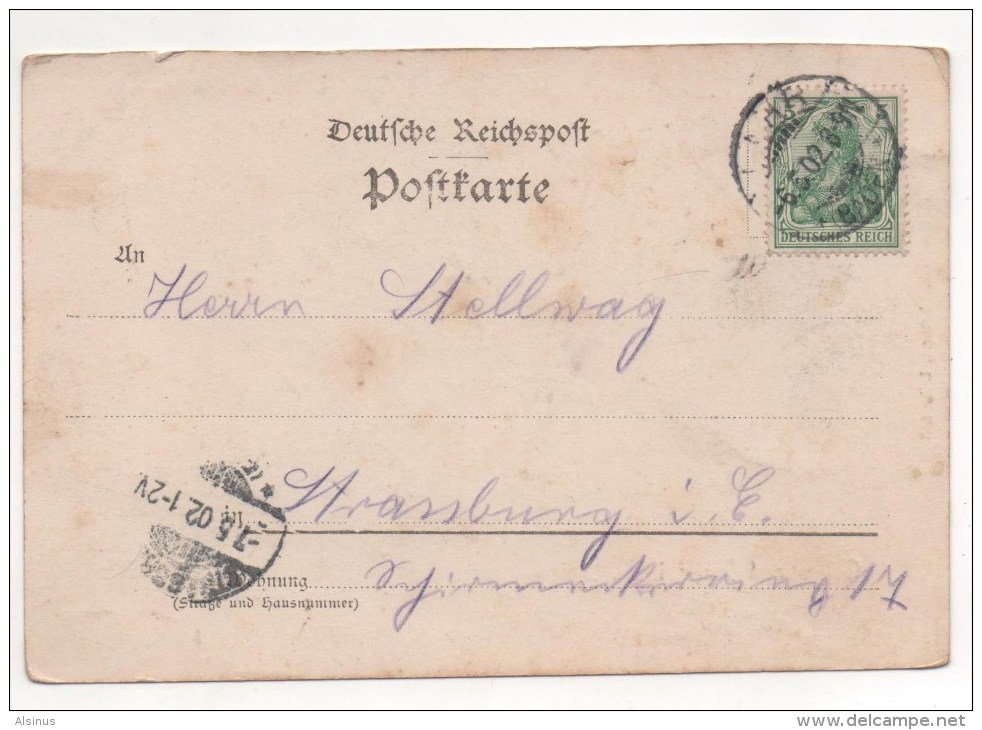 Deutsche Reichspost
Postkarte
5 5
DEUTSCHES REICH
6.5.02.
(BADEN)
An
Herrn Stellwag
Strassburg i. E.
in
-7.5.02 1-2V
Schirmeckerring 17
Wohnung
(Straße und Hausnummer)
Alsinus
delcampe.net